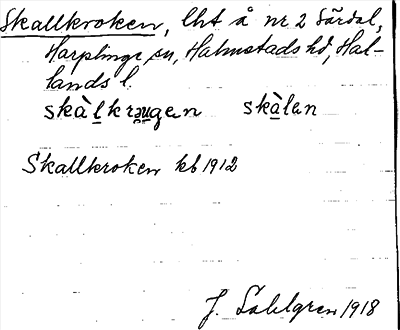 Skallkroken, lht å nr 2 Särdal,
Harplinge sn, Halmstads hd, Hal-
lands l.
skàlkrău̯gen skàlan
Skallkroken kb 1912
J. Sahlgren 1918